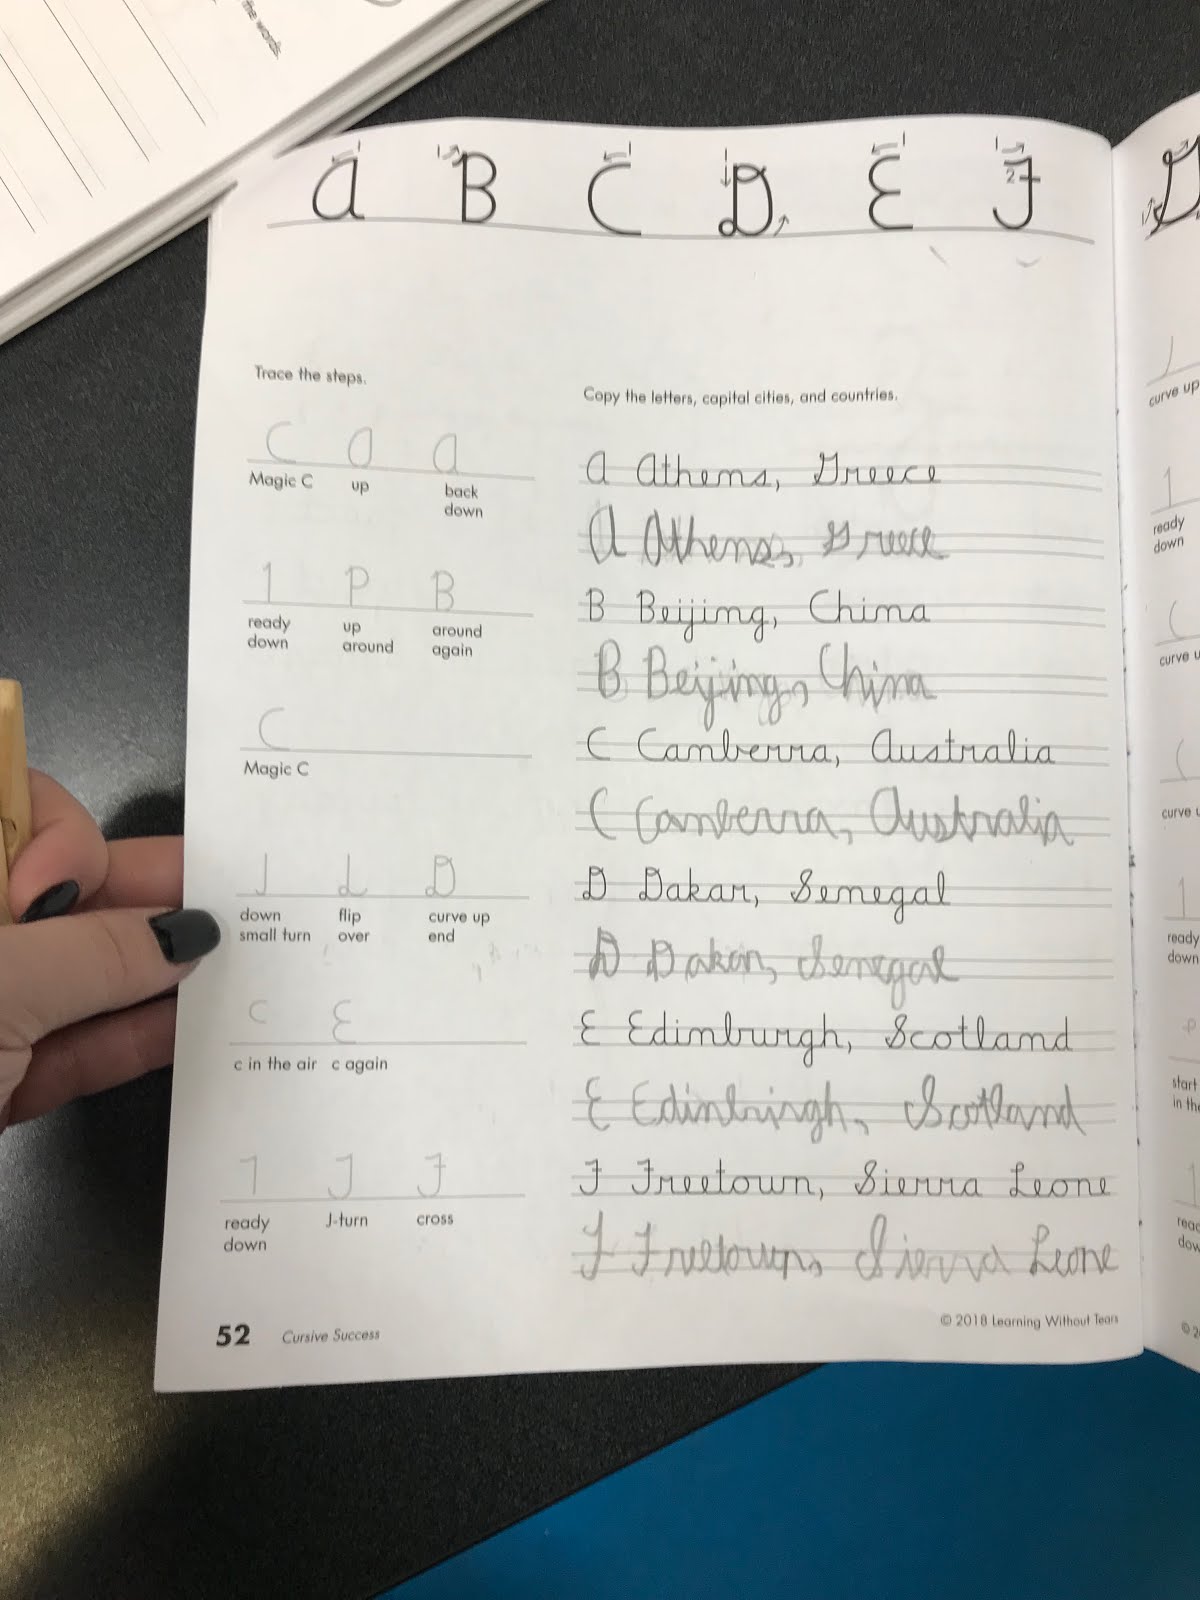 the words.
a B C D E F
Trace the steps.
C a a
Magic C up back down
1 P B
ready down up around around again
C
Magic C
J L D
down small turn flip over curve up end
c E
c in the air c again
7 J F
ready down J-turn cross
Copy the letters, capital cities, and countries.
a Athens, Greece
a Athens, Greece
B Beijing, China
B Beijing, China
C Canberra, Australia
C Canberra, Australia
D Dakar, Senegal
D Dakar, Senegal
E Edinburgh, Scotland
E Edinburgh, Scotland
F Freetown, Sierra Leone
F Freetown, Sierra Leone
52 Cursive Success
© 2018 Learning Without Tears
G
curve up
ready
down
curve u
curve u
ready
down
start
in the